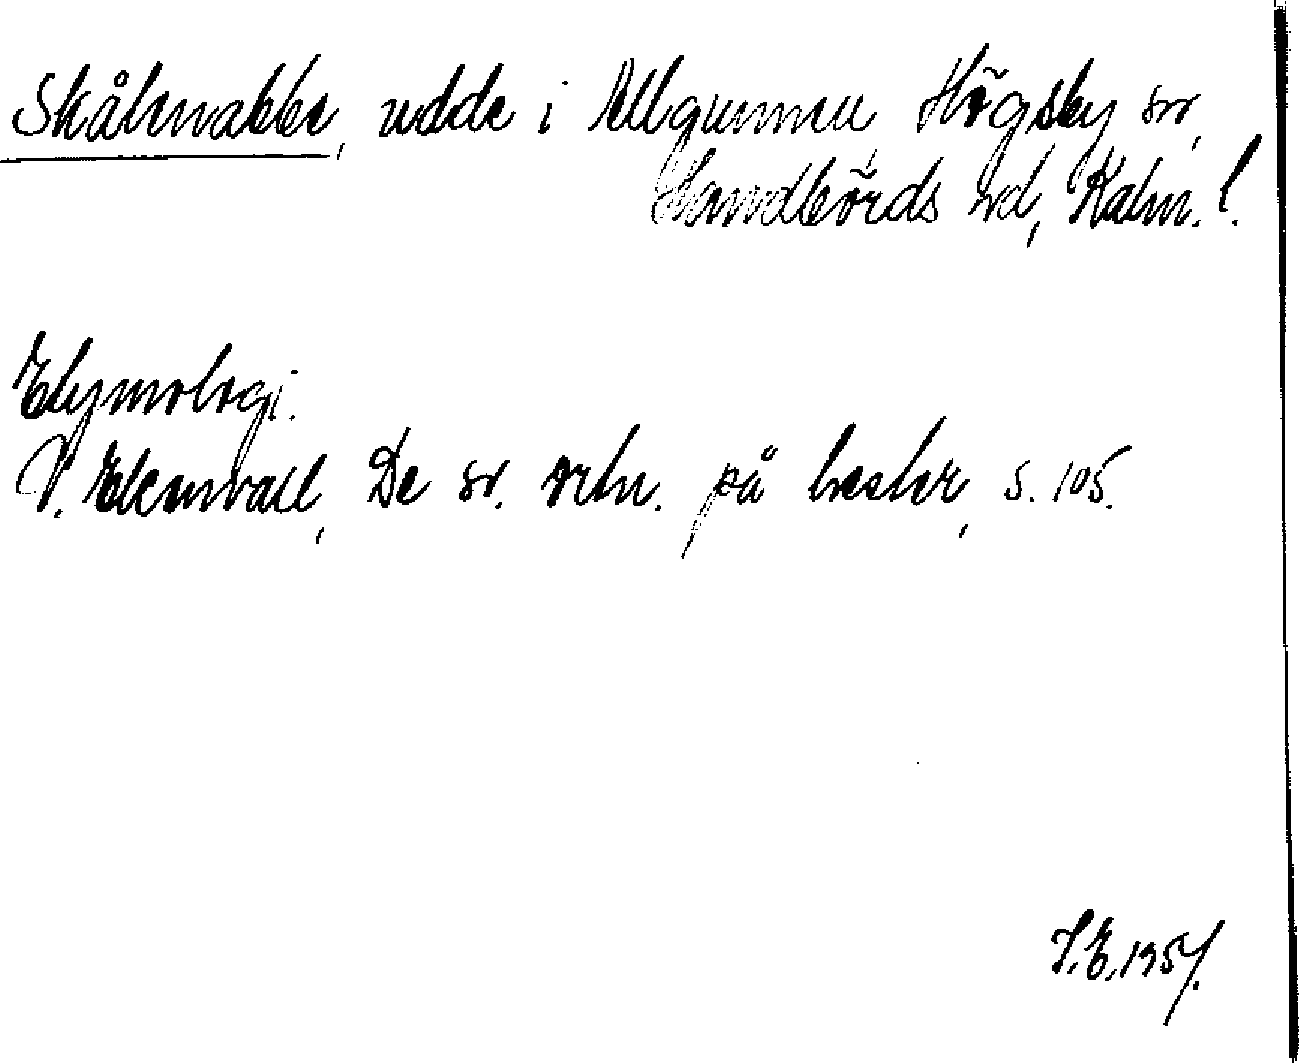 Skålenabbe, udde i Allgunnen, Högsby sn,
Handbörds hd, Kalm. l.
Etymologi.
V. Ekenvall, De sv. ortn. på hester, s. 105.
S.E. 1957.